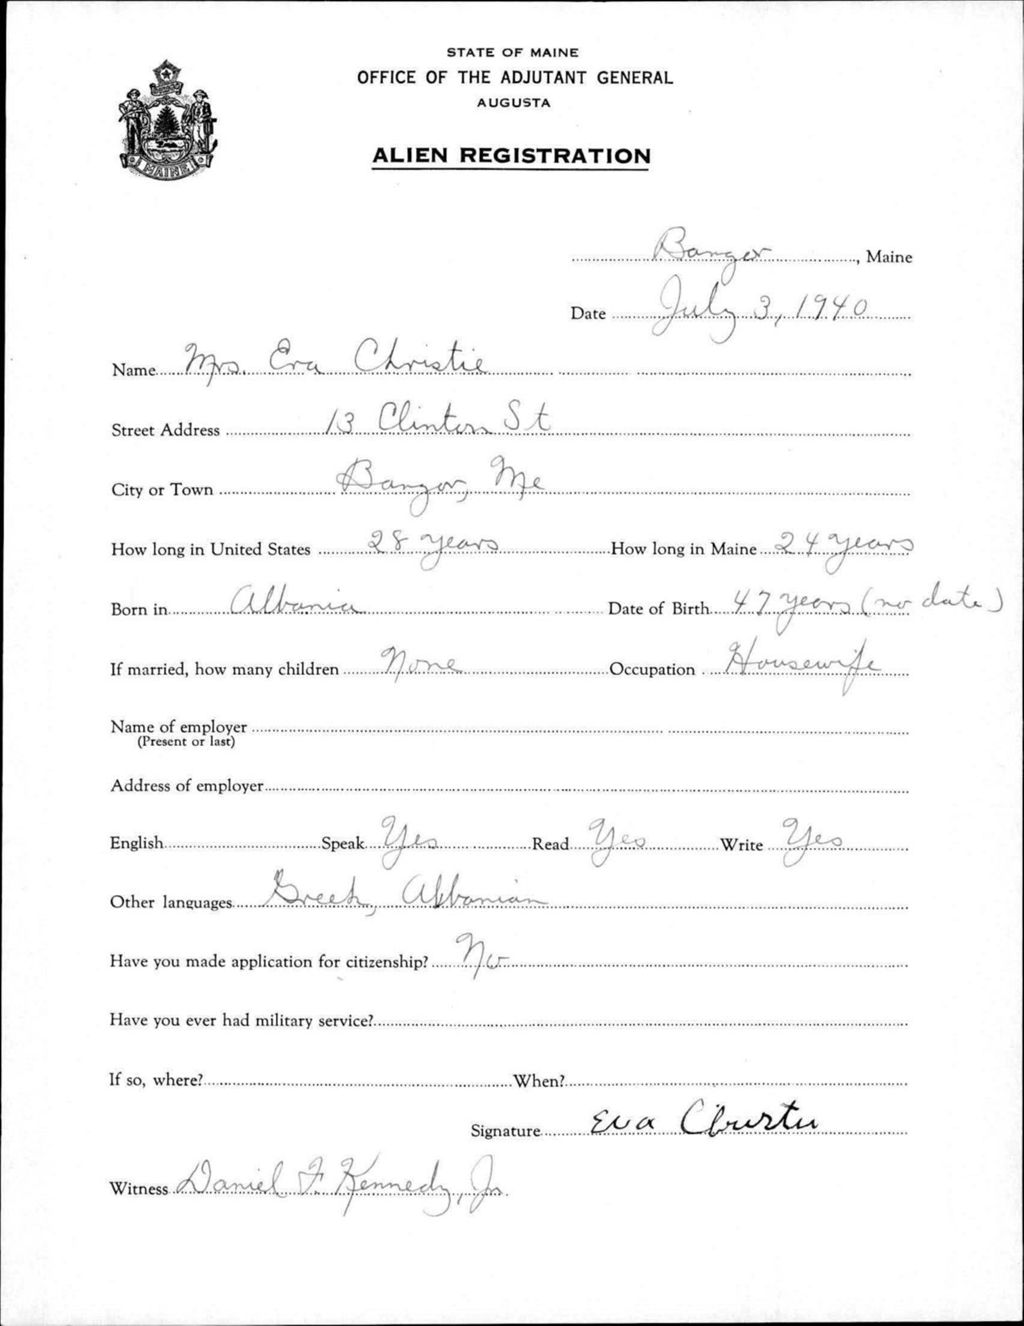 STATE OF MAINE
OFFICE OF THE ADJUTANT GENERAL
AUGUSTA
ALIEN REGISTRATION
MAINE
Bangor, Maine
Date July 3, 1940
Name Mrs. Eva Christie
Street Address 13 Clinton St
City or Town Bangor, Me
How long in United States 28 years How long in Maine 24 years
Born in Albania Date of Birth 47 years (no date)
If married, how many children None Occupation Housewife
Name of employer
(Present or last)
Address of employer
English Speak Yes Read Yes Write Yes
Other languages Greek, Albanian
Have you made application for citizenship? No
Have you ever had military service?
If so, where? When?
Signature Eva Christie
Witness Daniel F. Kennedy, Jr.